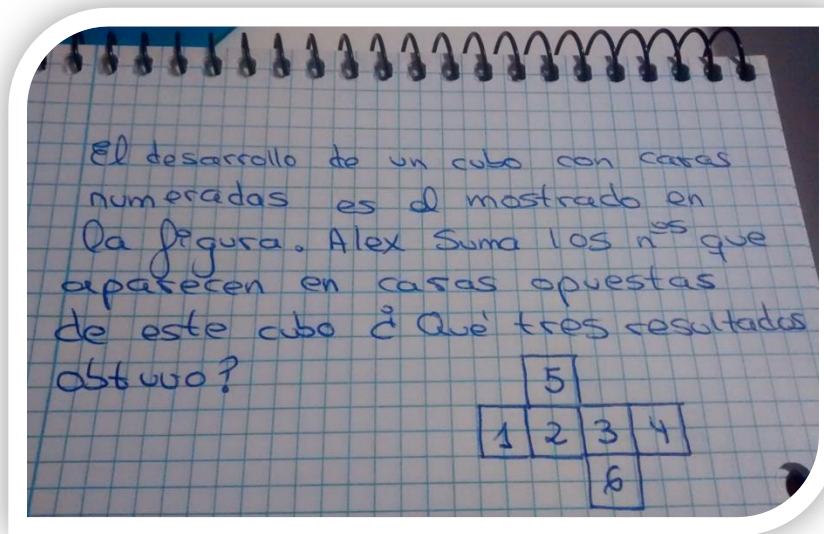 El desarrollo de un cubo con caras
numeradas es el mostrado en
la figura. Alex suma los nos que
aparecen en caras opuestas
de este cubo ¿ Qué tres resultados
obtuvo?
5
1 2 3 4
6